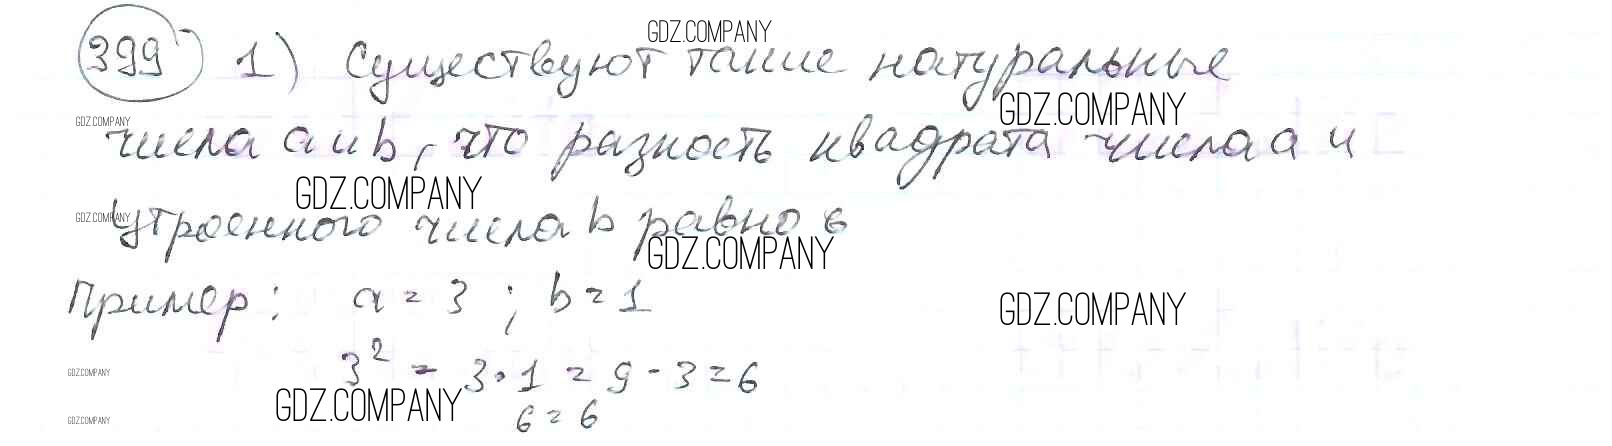 GDZ.COMPANY
399 1) Существуют такие натуральные
GDZ.COMPANY
GDZ.COMPANY
числа a и b, что разность квадрата числа a и
GDZ.COMPANY
GDZ.COMPANY
утроенного числа b равно 6
GDZ.COMPANY
Пример: a = 3 ; b = 1
GDZ.COMPANY
3² - 3·1 = 9 - 3 = 6
GDZ.COMPANY
GDZ.COMPANY
6 = 6
GDZ.COMPANY